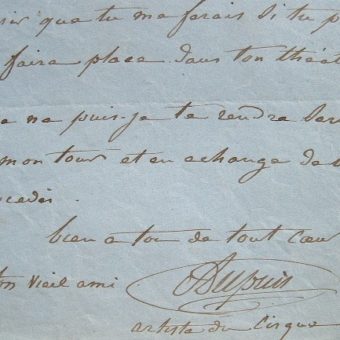 que tu me ferais si tu p
faire place dans ton théât
ne puis-je te rendre
mon tour et en echange de
bien a toi de tout cœur
ton vieil ami Dupuis
artiste du Cirque